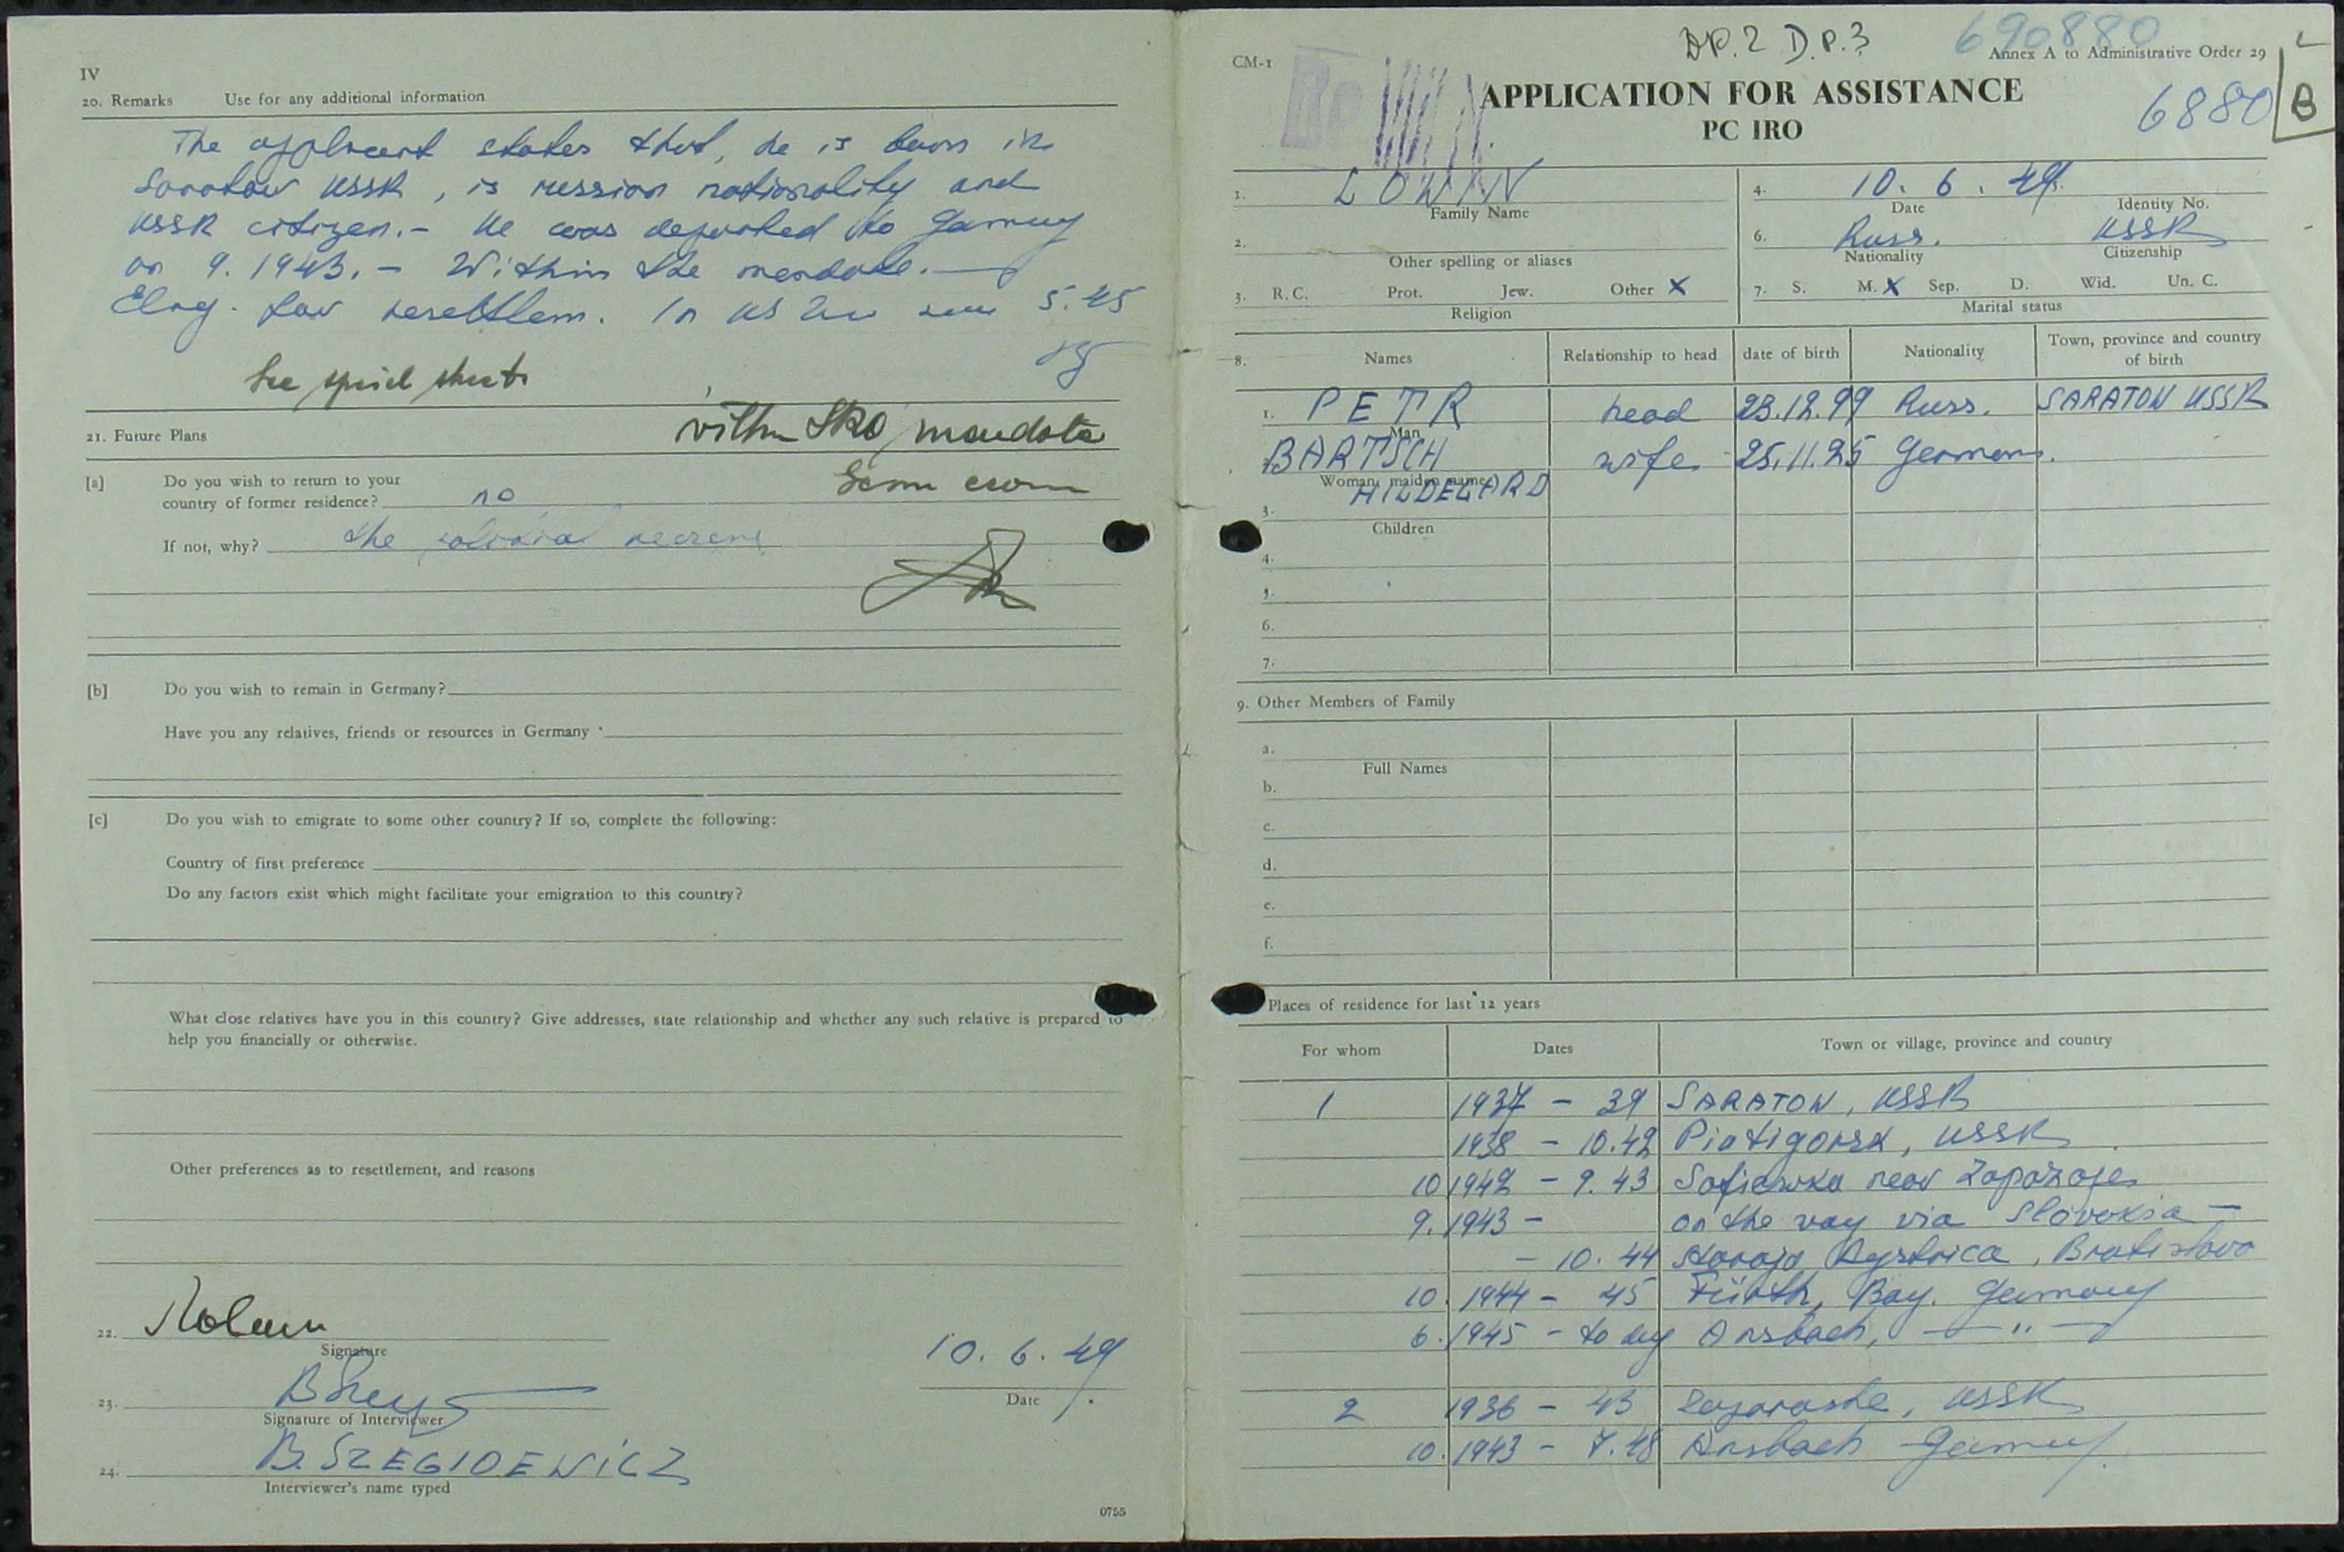 IV
20. Remarks Use for any additional information
The applicant states that, he is born in
Saratow USSR, is russian nationality and
USSR citizen.- He was deported to Germany
on 9. 1943. - Within the mandate. -
Elig. for resettlem. In US Zone since 5.45
See special sheets
within IRO mandate
21. Future Plans
[a] Do you wish to return to your
country of former residence? no
If not, why? the
[b] Do you wish to remain in Germany?
Have you any relatives, friends or resources in Germany
[c] Do you wish to emigrate to some other country? If so, complete the following:
Country of first preference
Do any factors exist which might facilitate your emigration to this country?
What close relatives have you in this country? Give addresses, state relationship and whether any such relative is prepared to
help you financially or otherwise.
Other preferences as to resettlement, and reasons
22.
Signature
10. 6. 49.
Date
23.
Signature of Interviewer
24. B. SZEGIDEWICZ
Interviewer's name typed
0755
D.P.2 D.P.3
690880
CM-1 Annex A to Administrative Order 29
B
APPLICATION FOR ASSISTANCE
PC IRO
6880
1. LOWIN
Family Name
2.
Other spelling or aliases
3. R. C. Prot. Jew. Other X
Religion
4. 10. 6. 49.
Date Identity No.
6. Russ. USSR
Nationality Citizenship
7. S. M. X Sep. D. Wid. Un. C.
Marital status
8. Names Relationship to head date of birth Nationality Town, province and country
of birth
1. PETR head 23.12.99 Russ. SARATOW USSR
Man
BARTSCH wife 25.11.25 German.
Woman, maiden name
HILDEGARD
3.
Children
4.
5.
6.
7.
9. Other Members of Family
a.
Full Names
b.
c.
d.
e.
f.
Places of residence for last 12 years
For whom Dates Town or village, province and country
1 1937 - 39 SARATOW, USSR
1938 - 10.42 Piatigorsk, USSR
10 1942 - 9. 43 Sofiewka near Zaporoje
9. 1943 - on the way via Slovakia -
- 10. 44 Bystrica, Bratislava
10. 1944 - 45 Fürth, Bay. Germany
6. 1945 - to day Ansbach, - " -
2 1936 - 43 USSR
10. 1943 - 7.48 Ansbach Germany